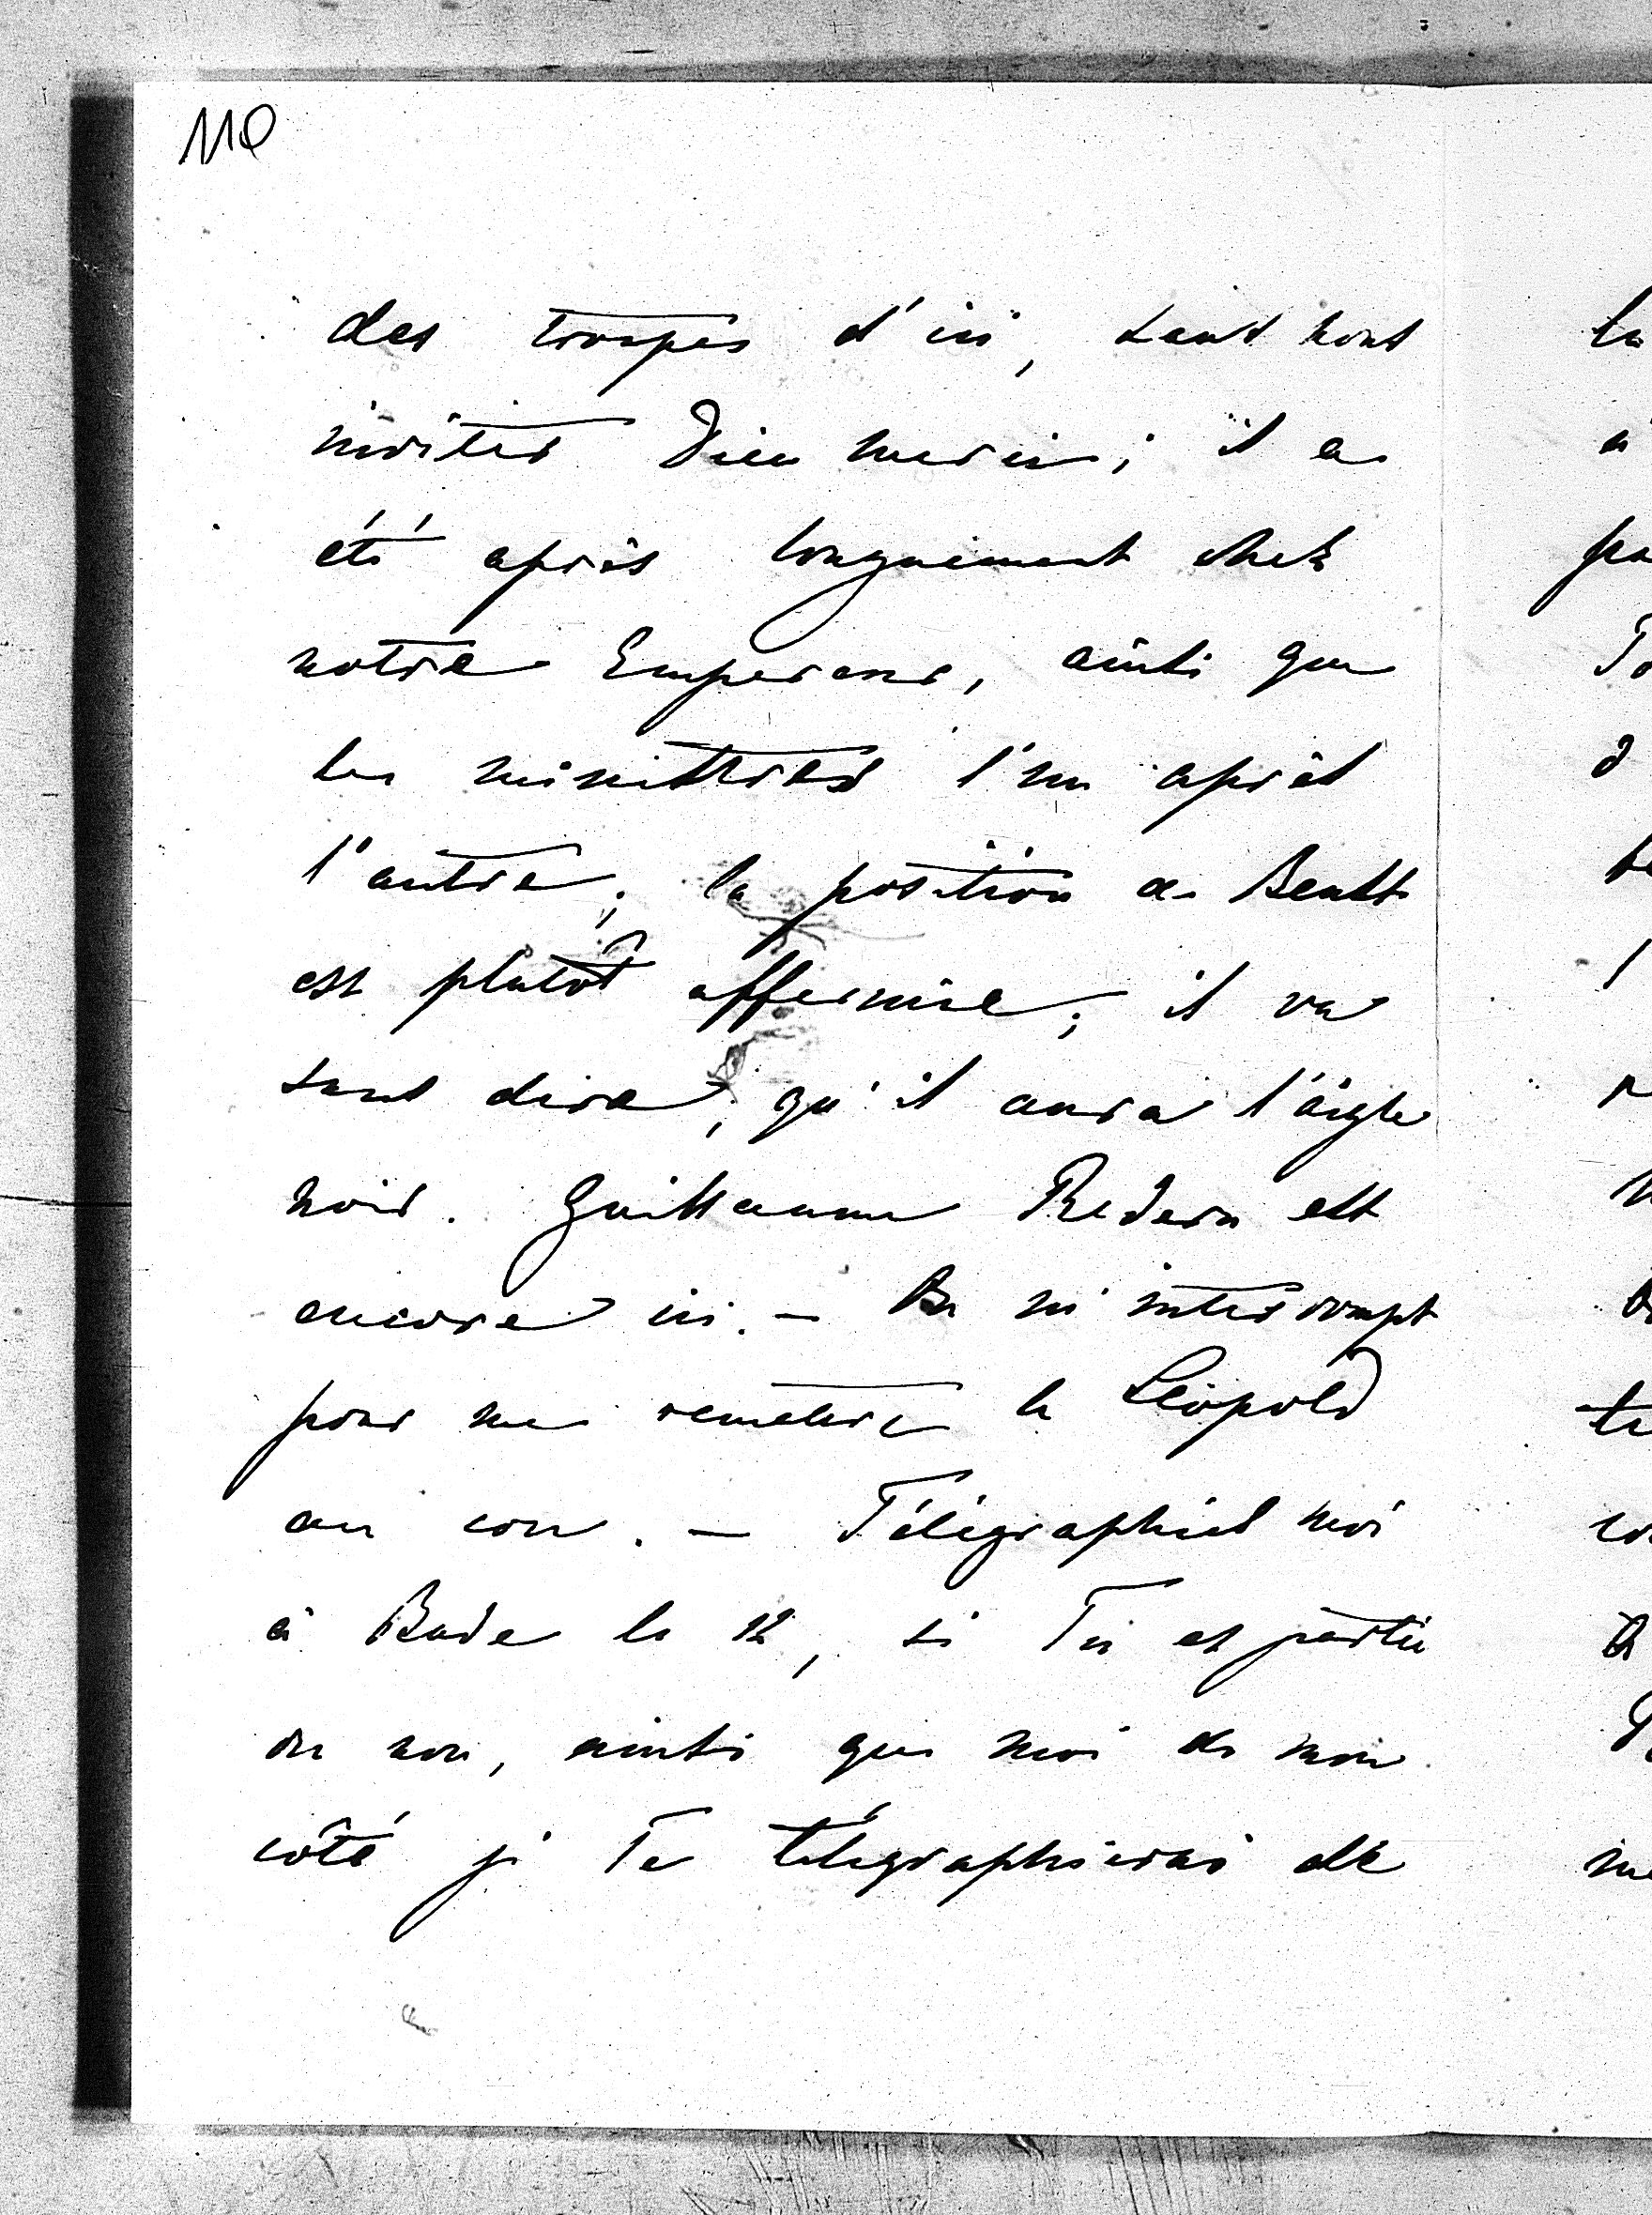 110
des troupes d'ici, sans nous
inviter Dieu merci; il a
été après longuement chez
notre Empereur, ainsi que
les ministres l'un après
l'autre; la position de Beust
est plutôt affermie; il va
sans dire, qu'il aura l'aigle
noir. Guillaume Redern est
encore ici. – On m'interrompt
pour me remettre le Léopold
au cou. – Télégraphies moi
à Bade le 12, si Tu es partie
ou non, ainsi que moi de mon
côté je Te télégraphierai de